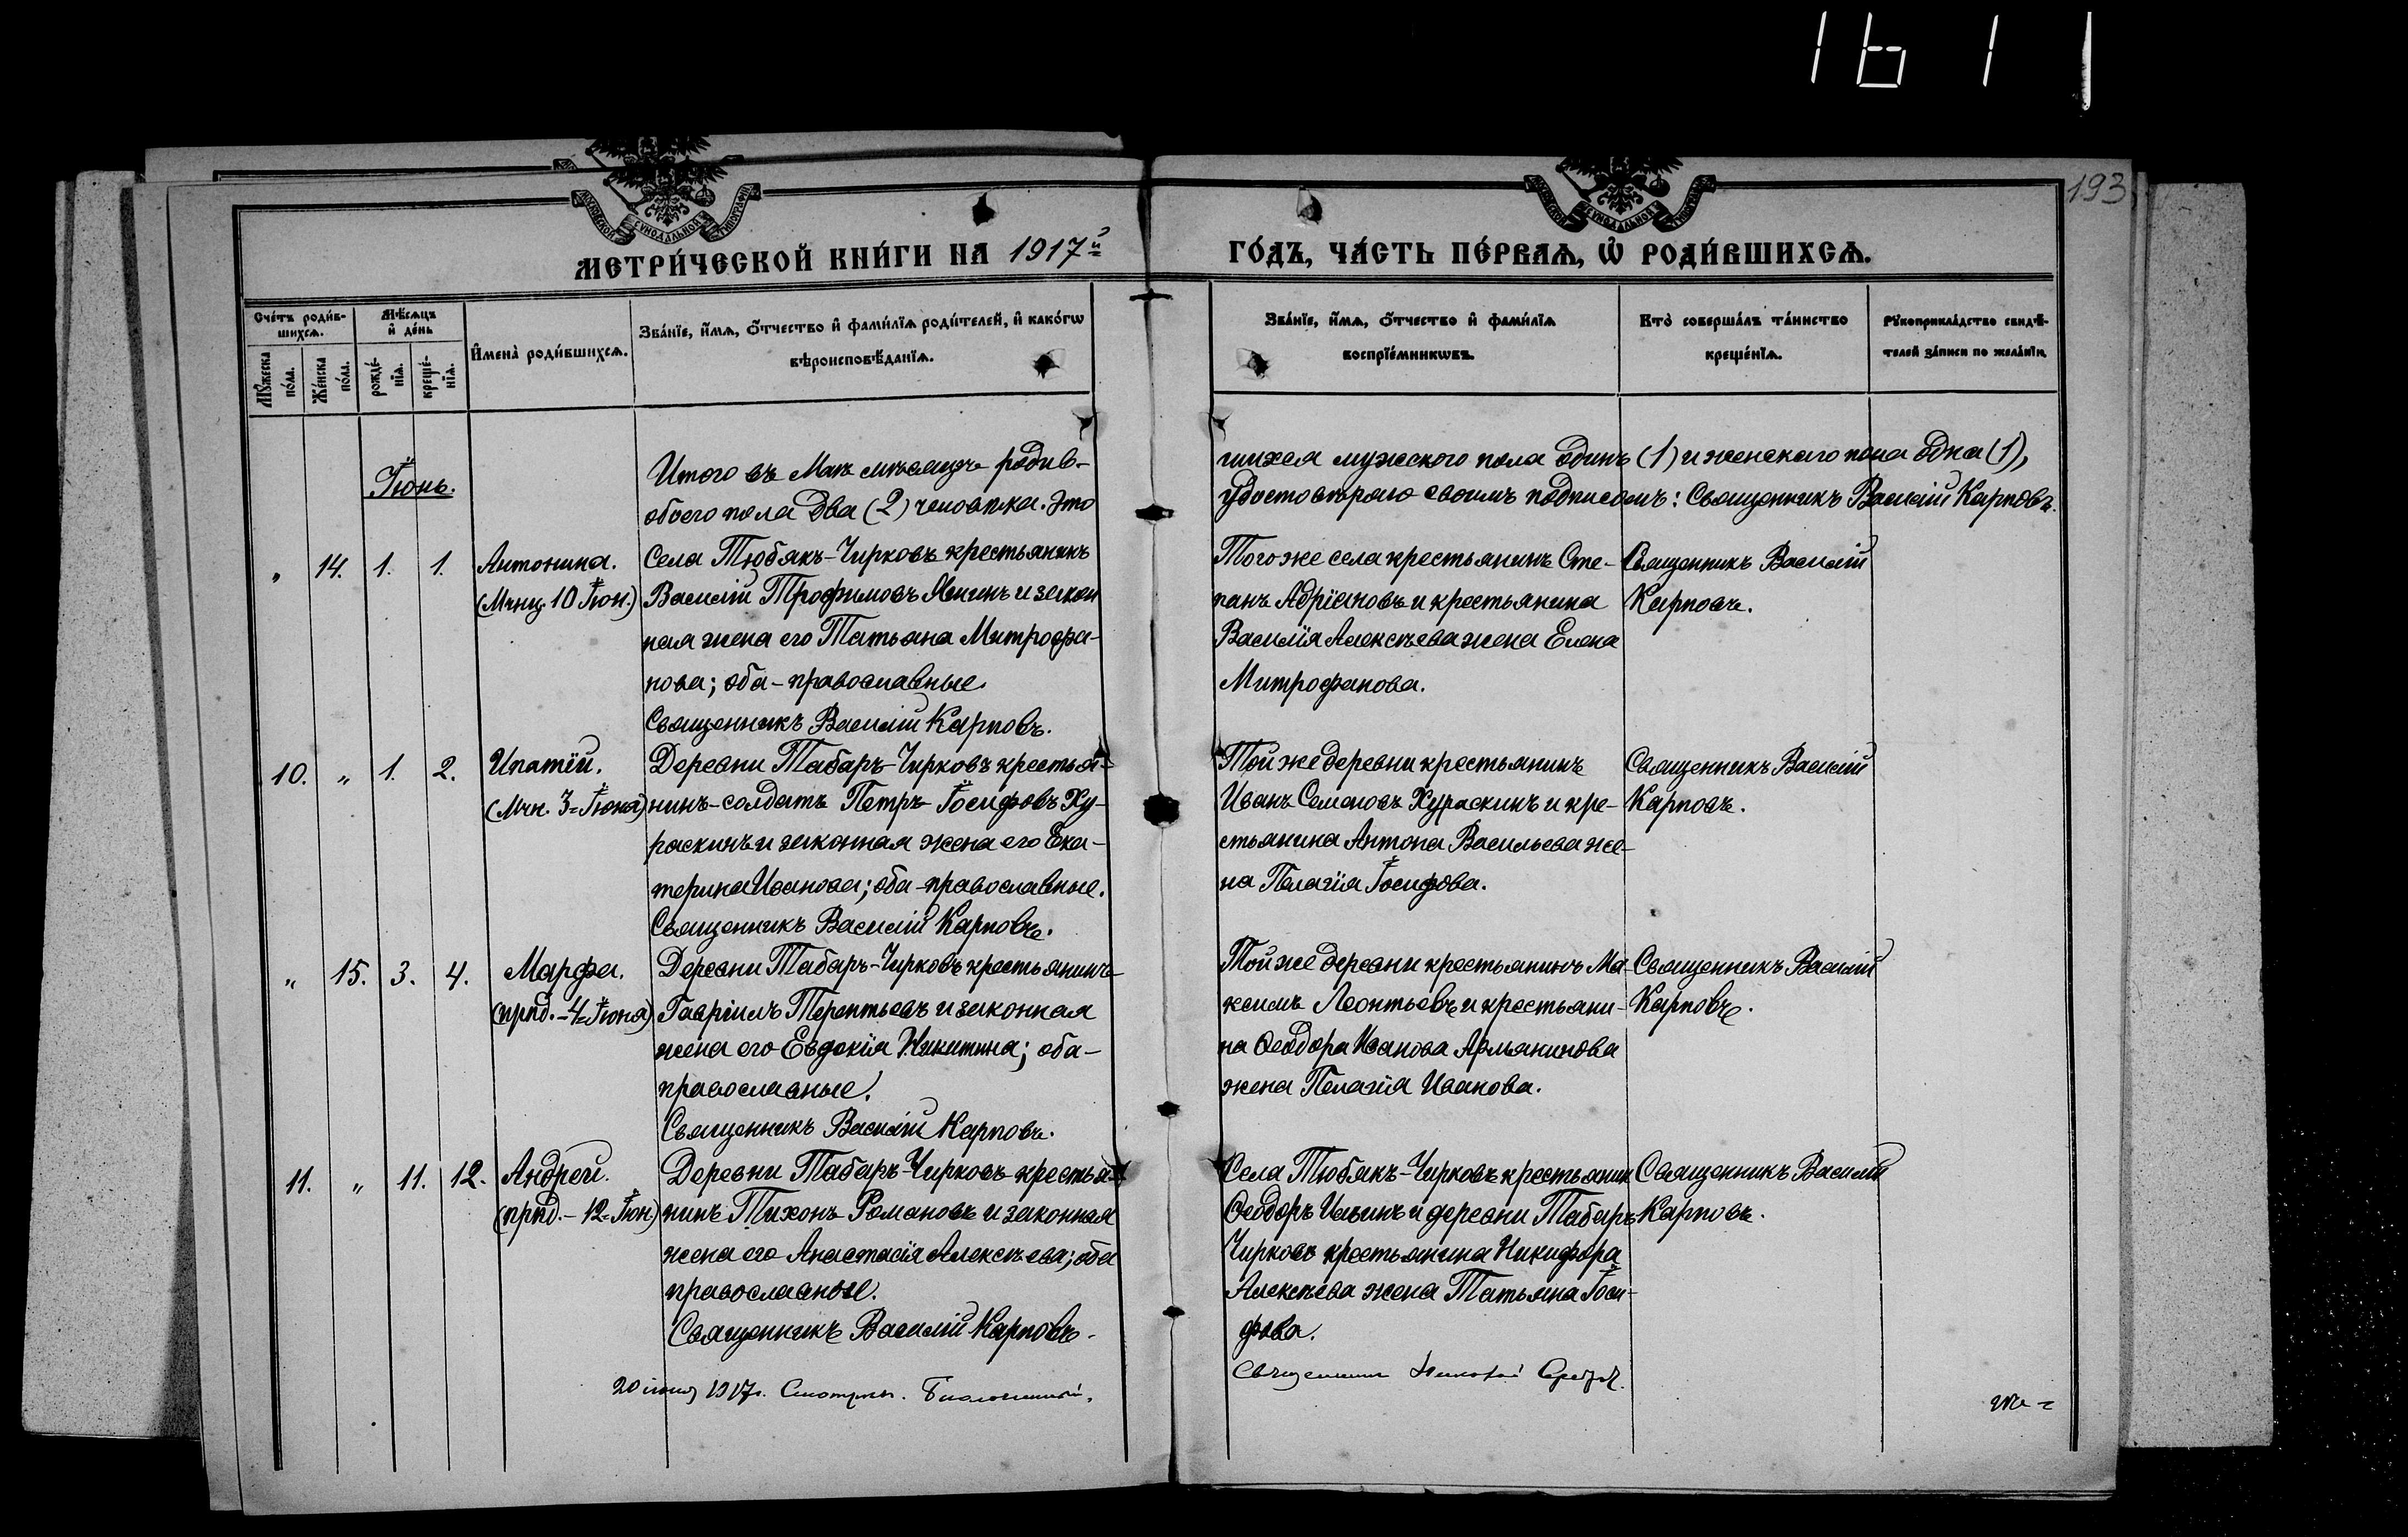 1611
193
МЕТРИ́ЧЕСКОЙ КНИ́ГИ НА 1917й
ГО́ДЪ, ЧА́СТЬ ПЕ́РВАѦ, Ѡ҆ РОДИ́ВШИХСѦ.
Сче́тъ роди́в-
шихсѧ.
Мѣ́сѧцъ
и҆ де́нь
Мꙋ́жеска
по́ла.
Же́нска
по́ла.
рожде́-
нїѧ.
креще́-
нїѧ.
И҆мена̀ роди́вшихсѧ.
Зва́нїе, и҆́мѧ, ѻ҆́тчество и҆ фами́лїѧ роди́телей, и҆ како́гѡ
вѣроисповѣ́данїѧ.
Зва́нїе, и҆́мѧ, ѻ҆́тчество и҆ фами́лїѧ
воспрїе́мникѡвъ.
Кто̀ соверша́лъ та́инство
креще́нїѧ.
Рꙋкоприкла́дство свидѣ́-
телей за́писи по жела́нїю.
Іюнь.
Итого въ Маѣ мѣсяцѣ родив-
шихся мужского пола одинъ (1) и женскаго пола одна (1),
обоего пола два (2) человѣка. Это
удостовѣряю своимъ подписомъ: Священникъ Василій Карповъ.
" 14. 1. 1. Антонина.
(Мчнц. 10 Іюн.)
Села Тюбякъ-Чирковъ крестьянинъ
Василій Трофимовъ Янинъ и закон
ная жена его Татьяна Митрофа-
нова; оба - православные.
Священникъ Василій Карповъ.
Того же села крестьянинъ Сте-
панъ Адріановъ и крестьянина
Василія Алексѣева жена Елена
Митрофанова.
Священникъ Василій
Карповъ.
10. " 1. 2. Ипатій.
(Мчн. 3=Іюня)
Деревни Табаръ-Чирковъ крестья-
нинъ-солдатъ Петръ Іосифовъ Ху-
раскинъ и законная жена его Ека-
терина Иванова; оба - православные.
Священникъ Василій Карповъ.
Той же деревни крестьянинъ
Иванъ Семеновъ Хураскинъ и кре-
стьянина Антона Васильева же-
на Пелагія Іосифова.
Священникъ Василій
Карповъ.
" 15. 3. 4. Марфа.
(прпд. - 4=Іюня)
Деревни Табаръ-Чирковъ крестьянинъ
Гавріилъ Терентьевъ и законная
жена его Евдокія Никитина; оба -
православные.
Священникъ Василій Карповъ.
Той же деревни крестьянинъ Ма-
ксимъ Леонтьевъ и крестьяни-
на Ѳеодора Иванова Армянинова
жена Пелагія Иванова.
Священникъ Василій
Карповъ.
11. " 11. 12. Андрей.
(прпд. - 12=Іюн)
Деревни Табаръ-Чирковъ крестья-
нинъ Тихонъ Романовъ и законная
жена его Анастасія Алексѣева; оба
православные.
Священникъ Василій Карповъ.
Села Тюбякъ-Чирковъ крестьянин
Ѳеодоръ Ильинъ и деревни Табаръ
Чирковъ крестьянина Никифора
Алексѣева жена Татьяна Іоси-
фова.
Священникъ Василій
Карповъ.
20 іюня 1917г. Смотрѣлъ. Благочинный,
Священникъ Николай